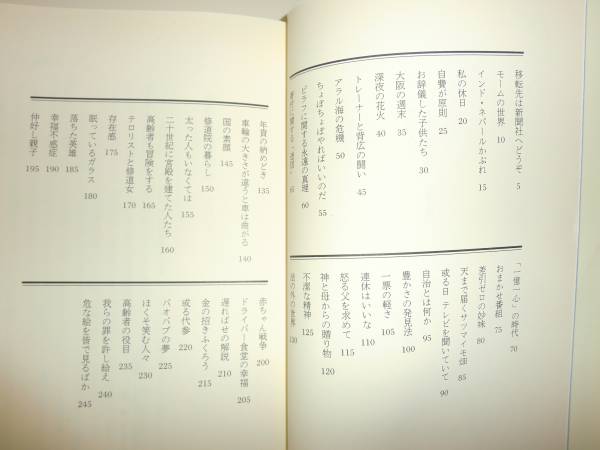 移転先は新聞社へどうぞ 5
モームの世界 10
インド・ネパールかぶれ 15
私の休日 20
自費が原則 25
お辞儀した子供たち 30
大阪の週末 35
深夜の花火 40
トレーナーと背広の闘い 45
アラル海の危機 50
ちょぼちょぼやればいいのだ 55
ピラフに関する永遠の真理 60
65
「一億一心」の時代 70
おまかせ番組 75
差引ゼロの妙味 80
天まで届くサツマイモ畑 85
或る日 テレビを聞いていて 90
自治とは何か 95
豊かさの発見法 100
一票の軽さ 105
連休はいいな 110
怒る父を求めて 115
神と母からの贈り物 120
不潔な精神 125
法の外の世界 130
年貢の納めどき 135
車輪の大きさが違うと車は曲がる 140
国の素顔 145
修道院の暮らし 150
太った人もいなくては 155
二十世紀に宮殿を建てた人たち 160
高齢者も冒険をする 165
テロリストと修道女 170
存在感 175
眠っているガラス 180
落ちた英雄 185
幸福不感症 190
仲好し親子 195
赤ちゃん戦争 200
ドライバー食堂の幸福 205
遅ればせの解説 210
金の招きふくろう 215
或る代参 220
バオバブの夢 225
ほくそ笑む人々 230
高齢者の役目 235
我らの罪を許し給え 240
危な絵を皆で見るばか 245